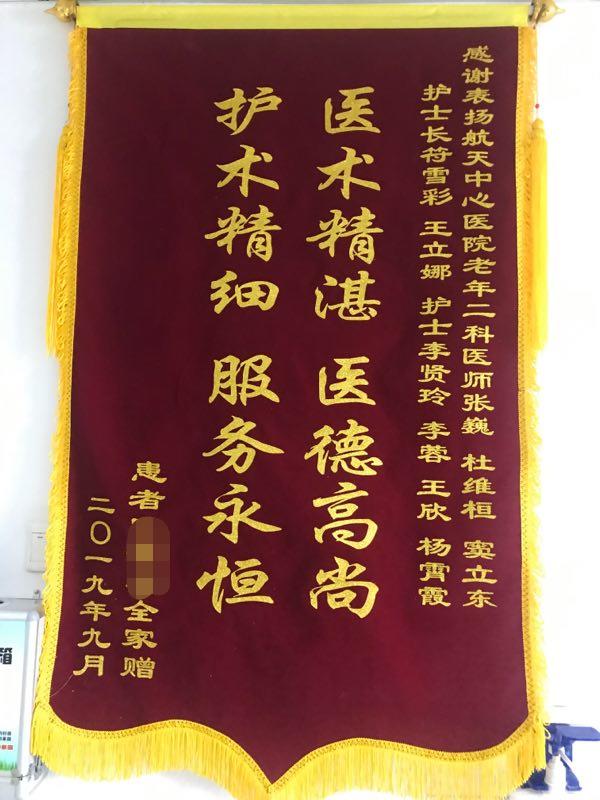 感谢表扬航天中心医院老年二科医师张巍 杜维桓 窦立东
护士长符雪彩 王立娜 护士李贤玲 李蓉 王欣 杨霄霞
医术精湛 医德高尚
护术精细 服务永恒
患者 全家赠
二〇一九年九月
箱